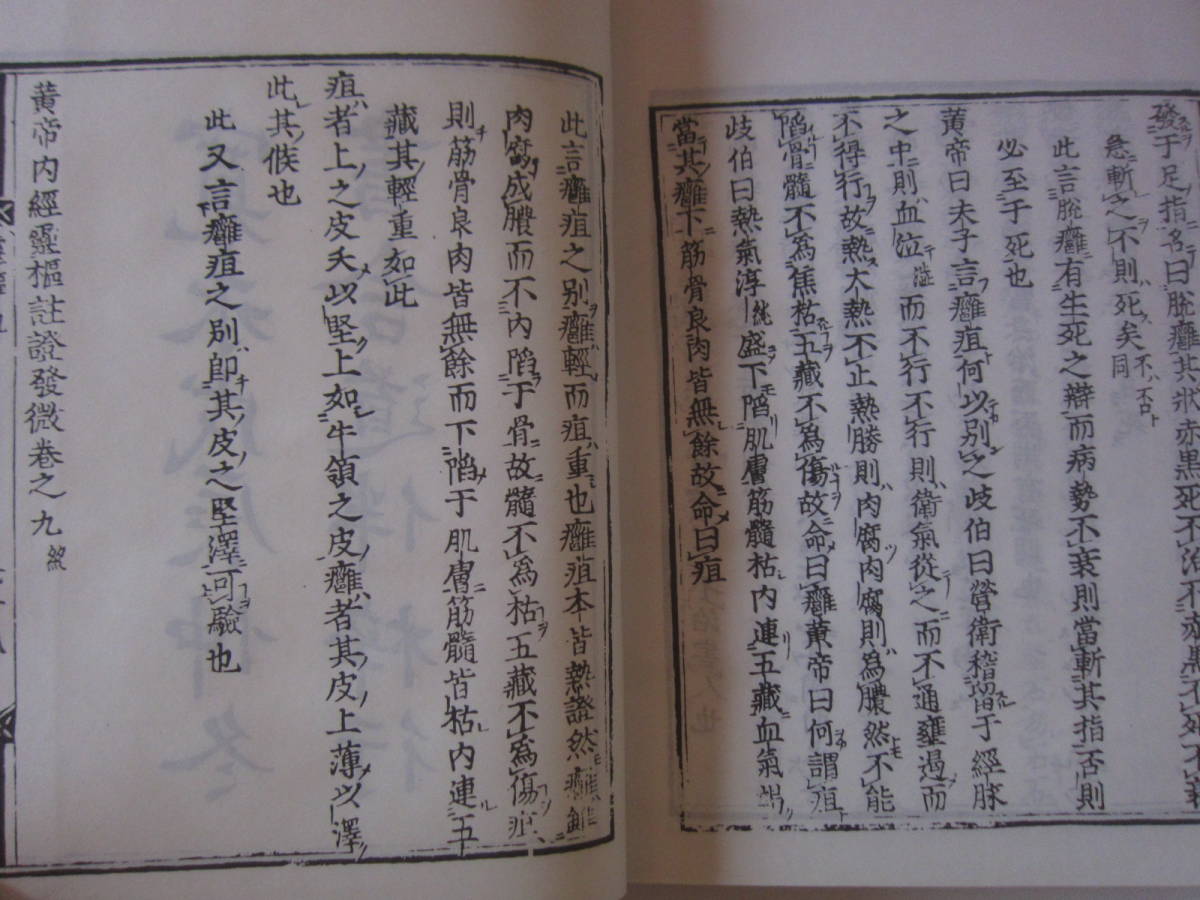 發于足指名曰脫癰其狀赤黑死不治不赤黑不死不衰
急斬之不則死矣不否同
此言脫癰有生死之辯而病勢不衰則當斬其指否則
必至于死也
黃帝曰夫子言癰疽何以別之歧伯曰營衛稽留于經脉
之中則血泣澁而不行不行則衛氣從之而不通壅遏而
不得行故熱大熱不止熱勝則肉腐肉腐則爲膿然不能
陷骨髓不爲焦枯五藏不爲傷故命曰癰黃帝曰何謂疽
歧伯曰熱氣淳純盛下陷肌膚筋髓枯內連五藏血氣竭
當其癰下筋骨良肉皆無餘故命曰疽
此言癰疽之别癰輕而疽重也癰疽本皆熱證然癰雖
肉腐成膿而不內陷于骨故髓不爲枯五藏不爲傷疽
則筋骨良肉皆無餘而下陷于肌膚筋髓皆枯內連五
藏其輕重如此
疽者上之皮夭以堅上如牛領之皮癰者其皮上薄以澤
此其候也
此又言癰疽之別即其皮之堅澤可驗也
黃帝內經靈樞註證發微卷之九終